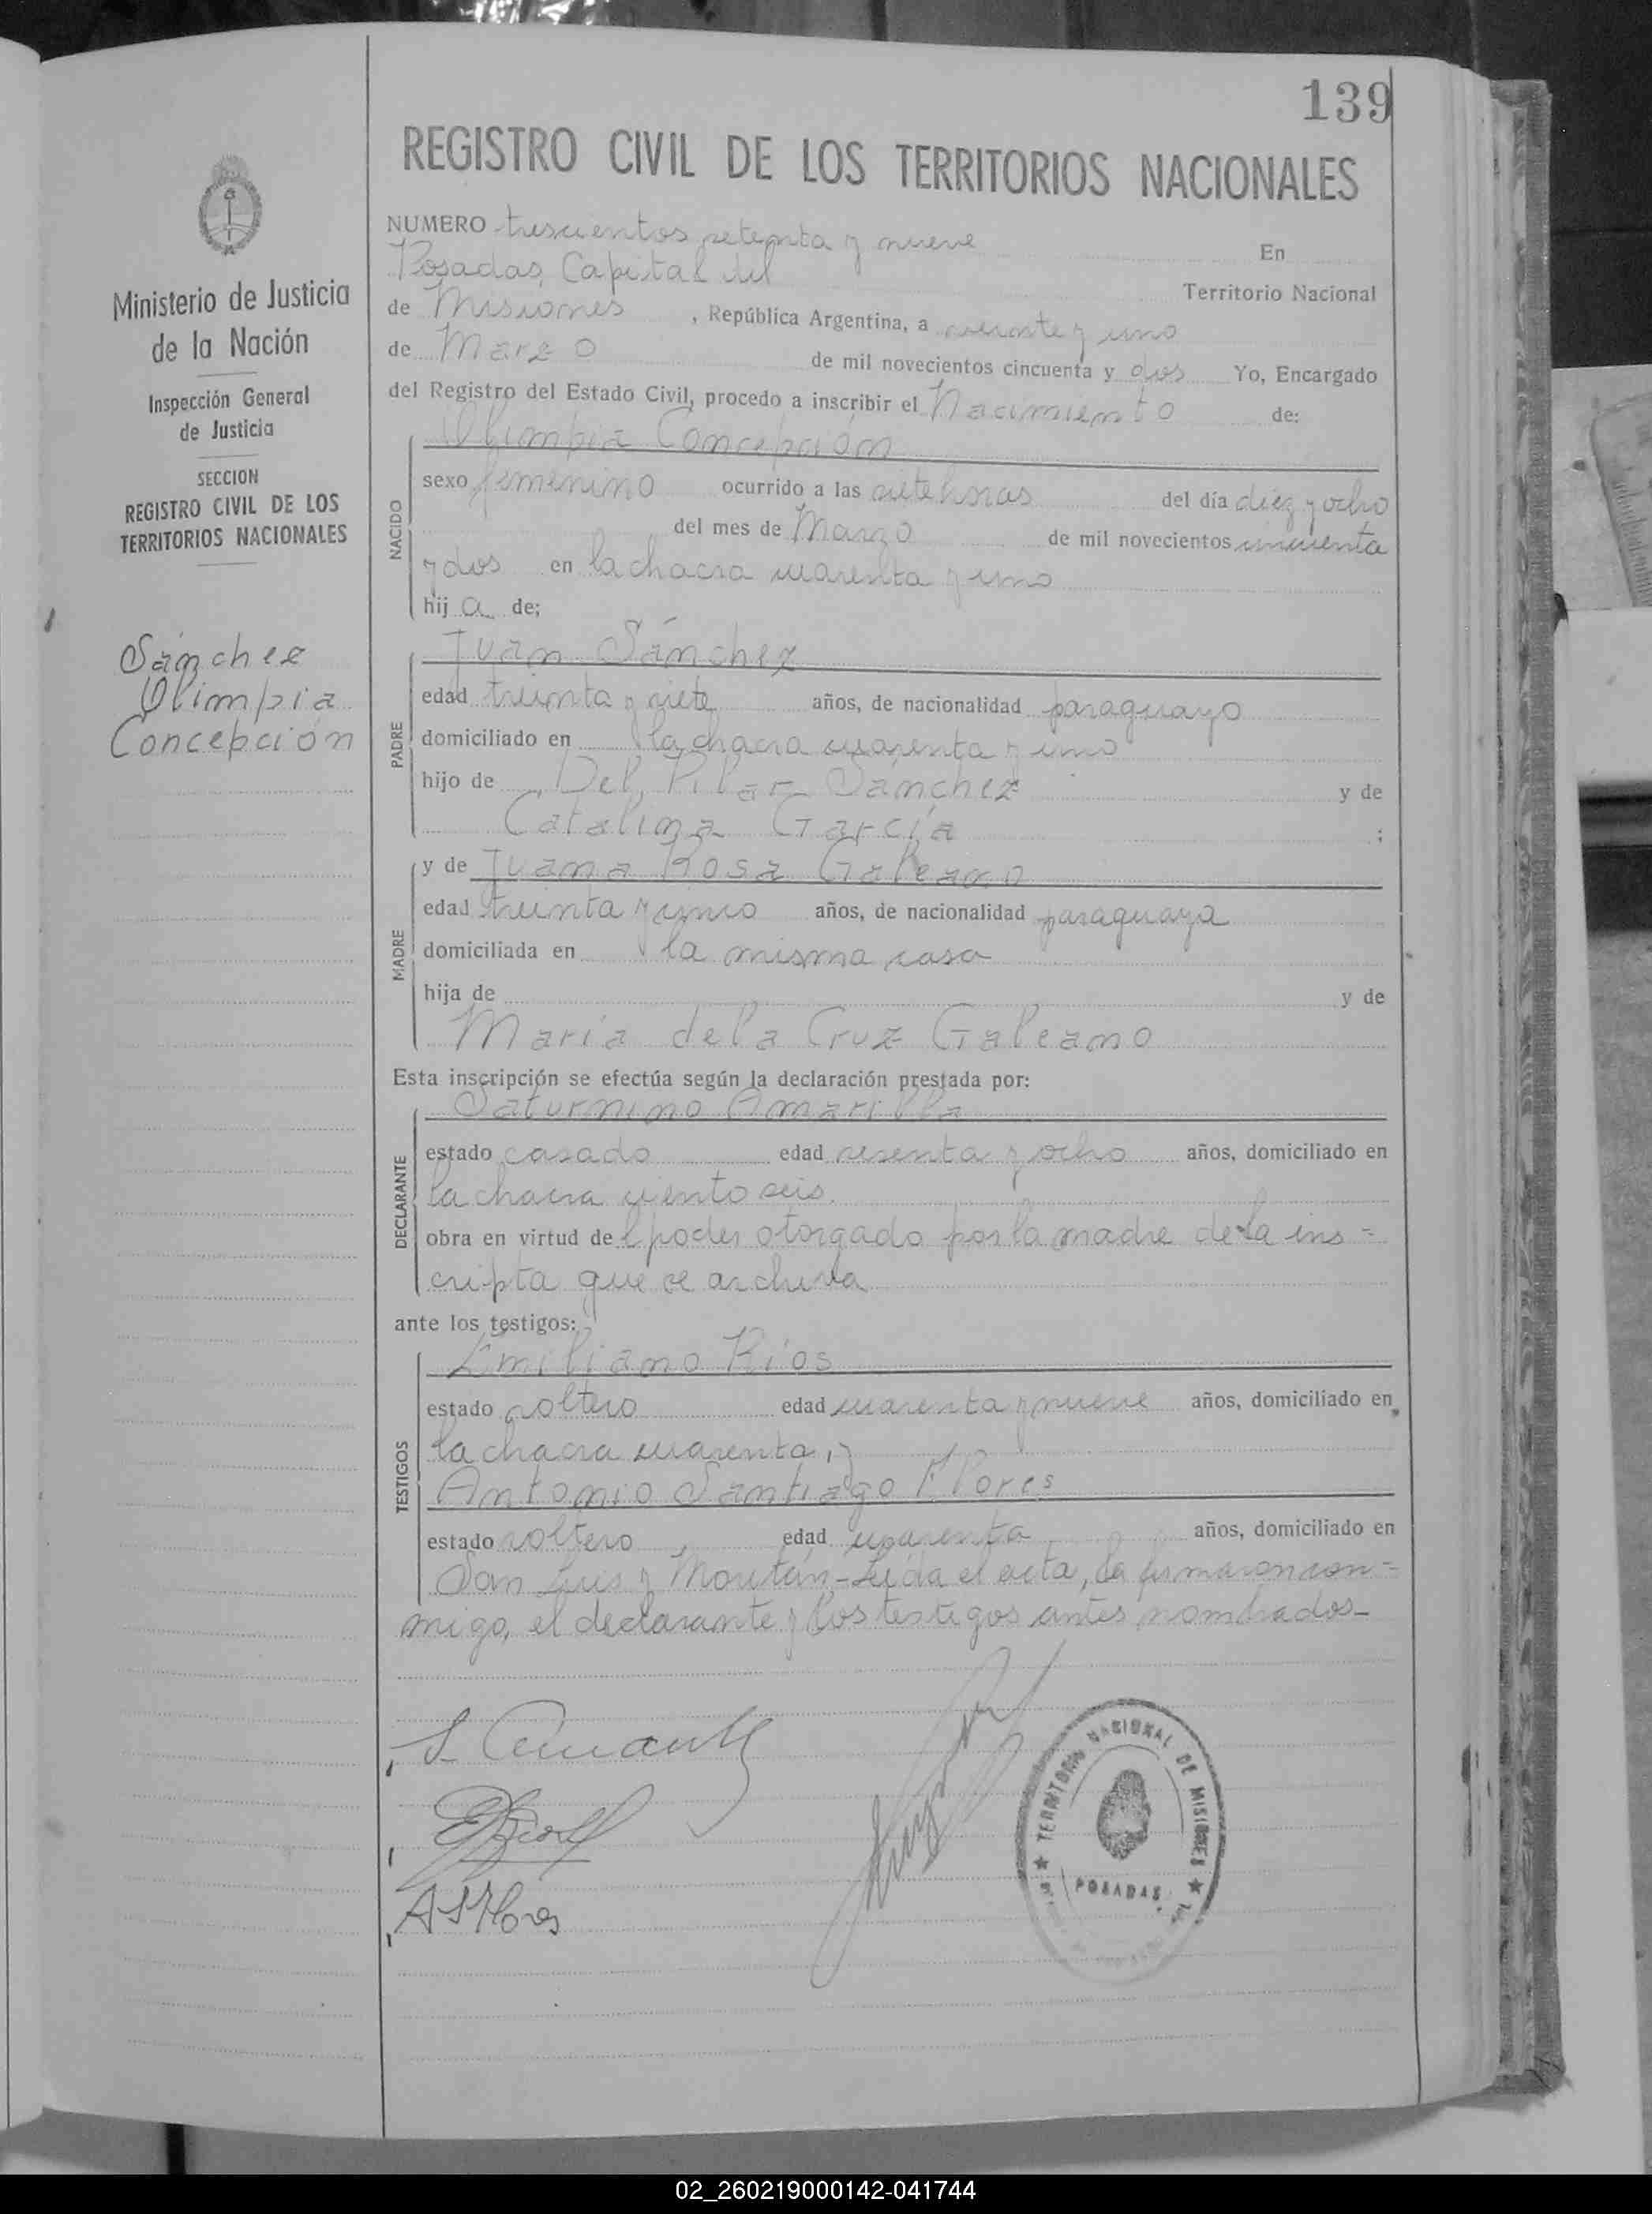 139
REGISTRO CIVIL DE LOS TERRITORIOS NACIONALES
Ministerio de Justicia
de la Nación
Inspección General
de Justicia
SECCION
REGISTRO CIVIL DE LOS
TERRITORIOS NACIONALES
Sánchez
Olimpia
Concepción
NUMERO trescientos setenta y nueve En
Posadas, Capital del Territorio Nacional
de Misiones, República Argentina, a veinte y uno
de Marzo de mil novecientos cincuenta y dos Yo, Encargado
del Registro del Estado Civil, procedo a inscribir el Nacimiento de:
NACIDO
Olimpia Concepción
sexo femenino ocurrido a las siete horas del día diez y ocho
del mes de Marzo de mil novecientos cincuenta
y dos en la chacra cuarenta y uno
hij a de;
PADRE
Juan Sánchez
edad treinta y siete años, de nacionalidad paraguayo
domiciliado en la chacra cuarenta y uno
hijo de Del Pilar Sánchez y de
Catalina García ;
MADRE
y de Juana Rosa Galeano
edad treinta y cinco años, de nacionalidad paraguaya
domiciliada en la misma casa
hija de y de
María de la Cruz Galeano
Esta inscripción se efectúa según la declaración prestada por:
DECLARANTE
Saturnino Amarilla
estado casado edad sesenta y ocho años, domiciliado en
la chacra ciento seis
obra en virtud de l poder otorgado por la madre de la ins=
cripta que se archiva
ante los testigos:
TESTIGOS
Emiliano Ríos
estado soltero edad cuarenta y nueve años, domiciliado en
la chacra cuarenta, y
Antonio Santiago Flores
estado soltero edad cuarenta años, domiciliado en
San Luis y Moritán-Leída el acta, la firmaron con=
migo, el declarante y los testigos antes nombrados-
A S Flores
TERRITORIO NACIONAL DE MISIONES
POSADAS
02_260219000142-041744